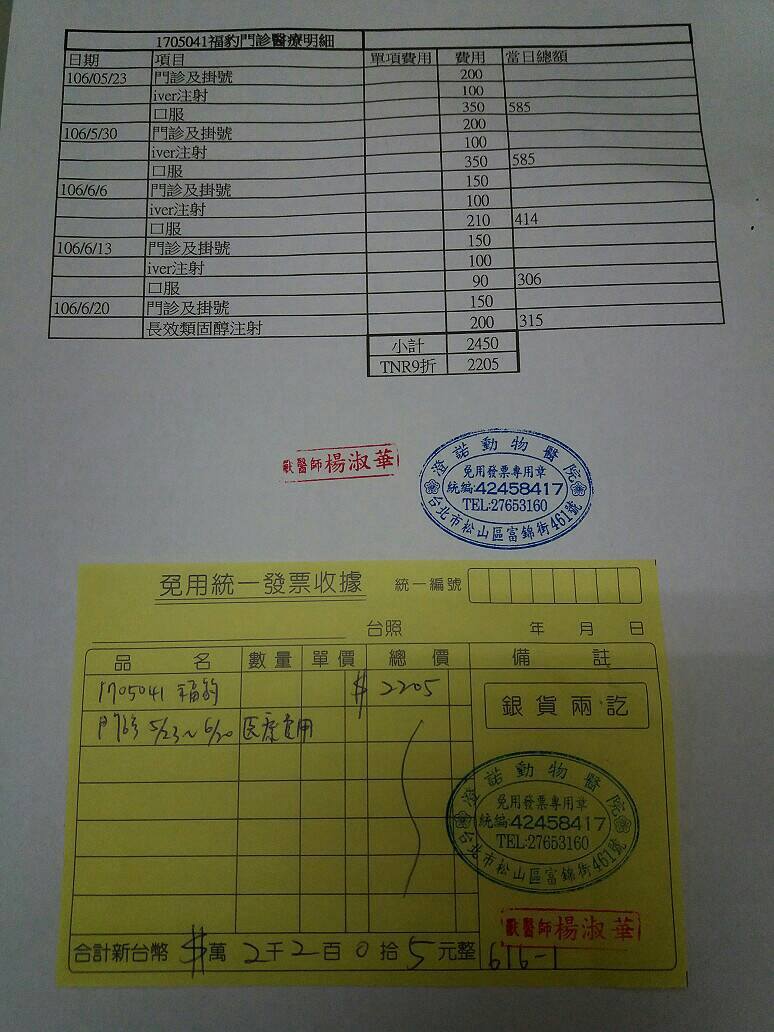 1705041福豹門診醫療明細
日期 項目 單項費用 費用 當日總額
106/05/23 門診及掛號 200
iver注射 100
口服 350 585
106/5/30 門診及掛號 200
iver注射 100
口服 350 585
106/6/6 門診及掛號 150
iver注射 100
口服 210 414
106/6/13 門診及掛號 150
iver注射 100
口服 90 306
106/6/20 門診及掛號 150
長效類固醇注射 200 315
小計 2450
TNR9折 2205
獸醫師楊淑華
澄諾動物醫院
免用發票專用章
統編:42458417
TEL:27653160
台北市松山區富錦街461號
免用統一發票收據 統一編號
台照 年 月 日
品名 數量 單價 總價 備註
1705041 福豹 $ 2205
銀貨兩訖
門診 5/23~6/20 医療費用
澄諾動物醫院
免用發票專用章
統編:42458417
TEL:27653160
台北市松山區富錦街461號
獸醫師楊淑華
合計新台幣 $萬 2千2百0拾5元整 616-1